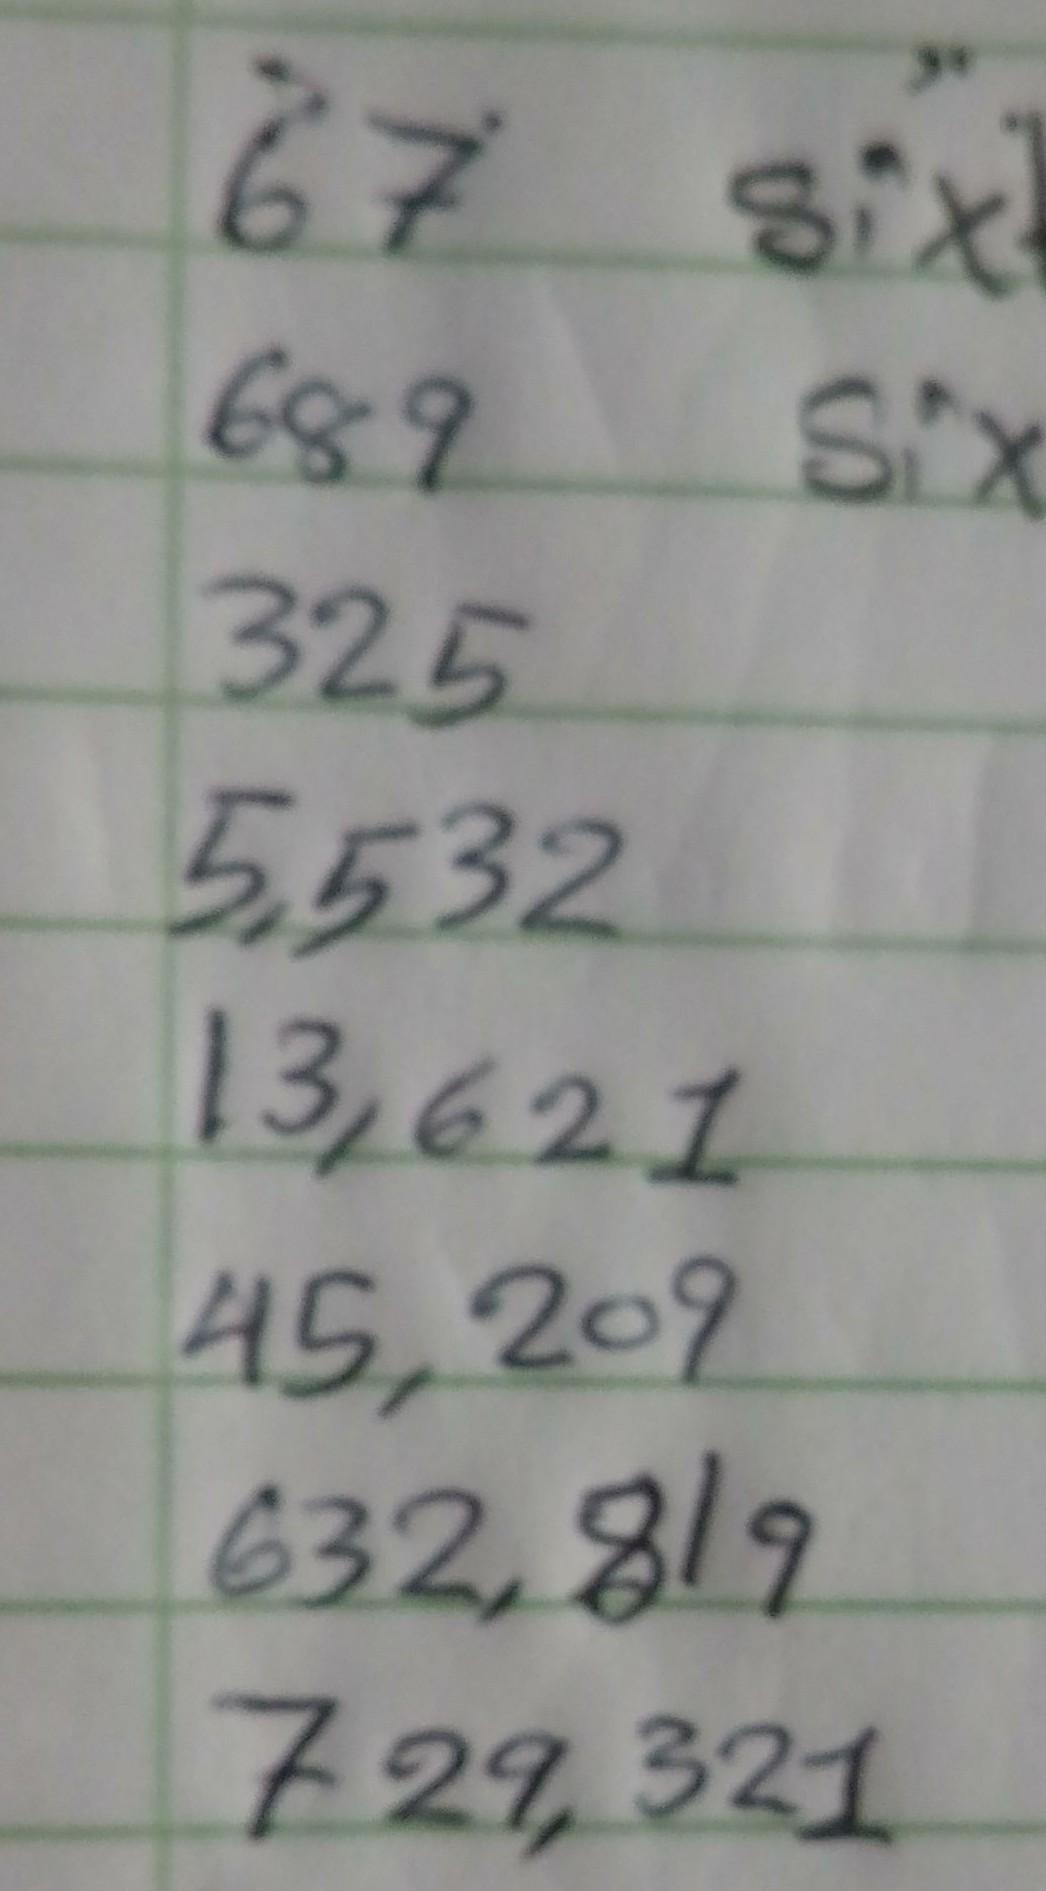 67 six
689 six
325
5,532
13,621
45,209
632,819
729,321